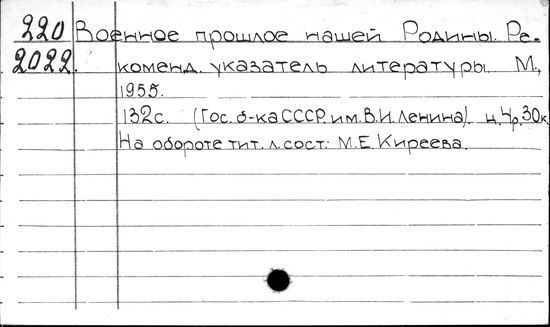 220 Военное прошлое нашей Родины. Ре-
2022. коменд. указатель литературы. М.,
1955.
132с. (Гос. б-ка СССР им. В.И. Ленина). ц. 4р. 30к.
На обороте тит. л. сост.: М.Е. Киреева.